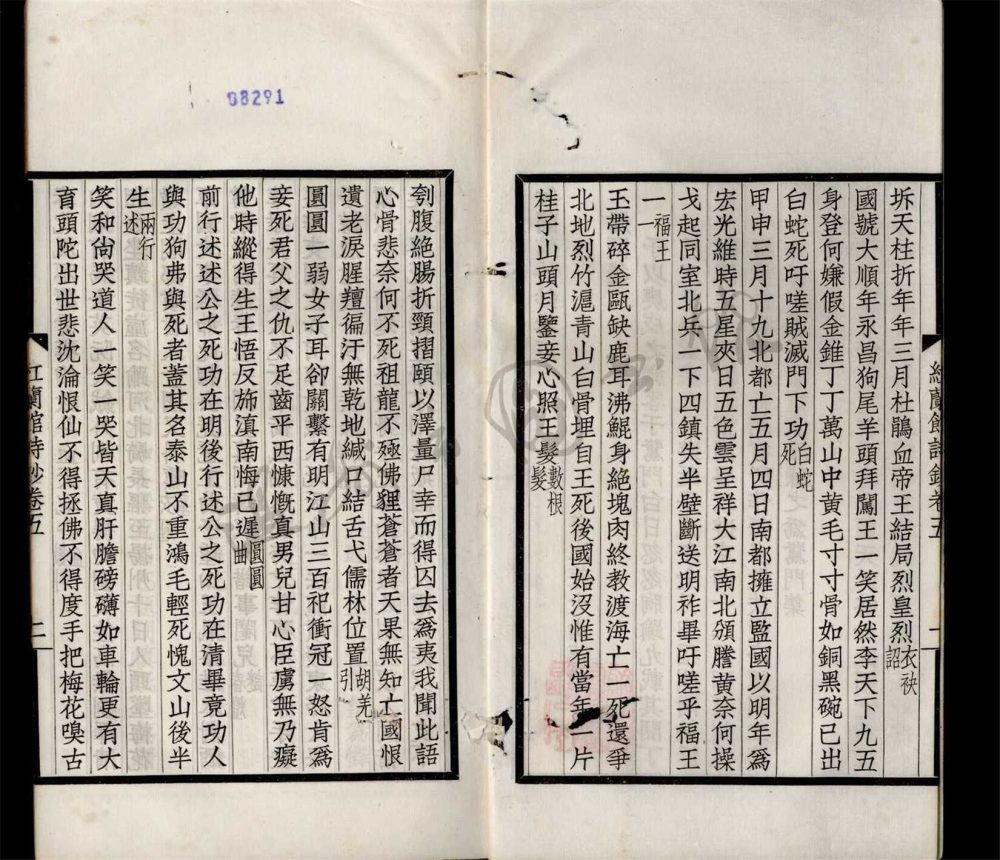 坼天柱折年年三月杜鵑血帝王結局烈皇烈衣袂詔
國號大順年永昌狗尾羊頭拜闖王一笑居然李天下九五
身登何嫌假金錐丁丁萬山中黄毛寸寸骨如銅黑碗已出
白蛇死吁嗟賊滅門下功白蛇死
甲申三月十九北都亡五月四日南都擁立監國以明年爲
宏光維時五星夾日五色雲呈祥大江南北頒謄黄奈何操
戈起同室北兵一下四鎮失半壁斷送明祚畢吁嗟乎福王
一福王一
玉帶碎金甌缺鹿耳沸鯤身絶塊肉終教渡海亡一死還爭
北地烈竹滬青山白骨埋自王死後國始没惟有當年一片
桂子山頭月鑒妾心照王髮數根髮
紅蘭館詩鈔卷五
一
刳腹絶腸折頸摺頤以澤量尸幸而得囚去爲夷我聞此語
心骨悲奈何不死祖龍不殛佛狸蒼蒼者天果無知亡國恨
遺老淚腥羶徧汙無乾地緘口結舌弋儒林位置胡羌引
圓圓一弱女子耳卻關繫有明江山三百祀衝冠一怒肯爲
妾死君父之仇不足齒平西慷慨真男兒甘心臣虜無乃癡
他時縱得生王悟反斾滇南悔已遲圓圓曲
前行述述公之死功在明後行述公之死功在清畢竟功人
與功狗弗與死者蓋其名泰山不重鴻毛輕死愧文山後半
生兩行述
笑和尚哭道人一笑一哭皆天真肝膽磅礴如車輪更有大
育頭陀出世悲沈淪恨仙不得拯佛不得度手把梅花嗅古
紅蘭館詩鈔卷五
二
08291